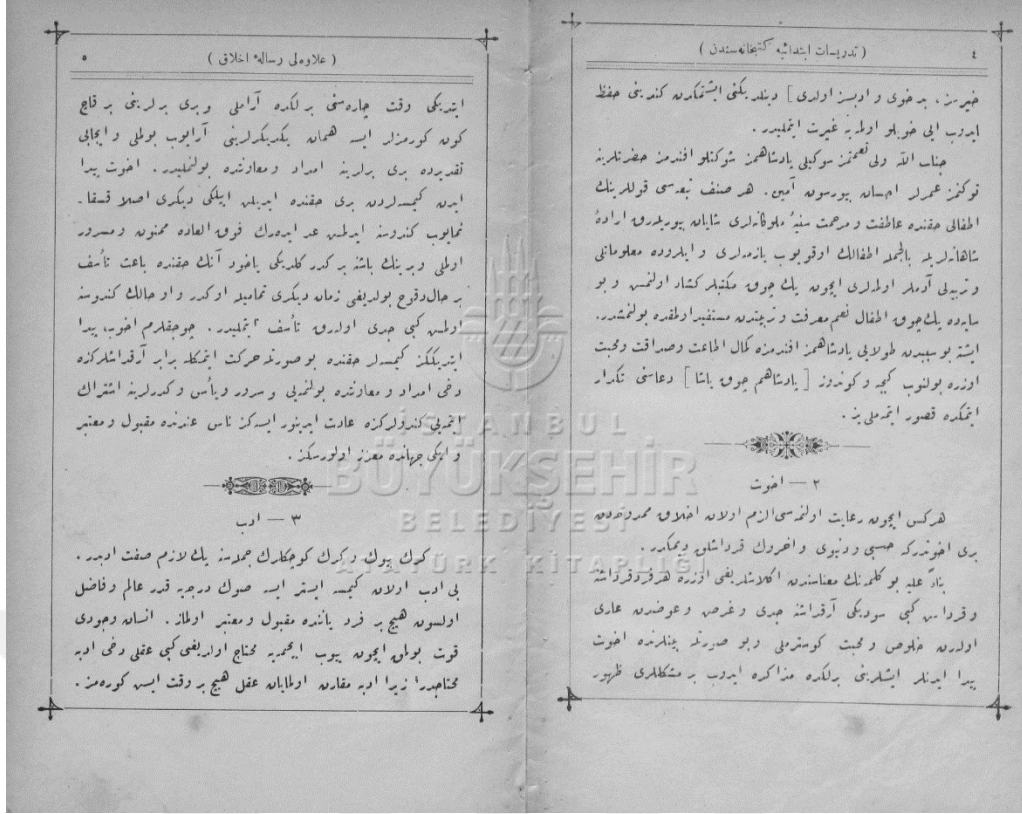 ٤
( تدریسات ابتدائیه کتبخانه‌سندن )
خیرسز ، بدخوی و ادبسز اولدی ] دینلدیکنی ایشتمکدن کندینی حفظ
ایدوب ایی خویلو اولمغه غیرت ایتملیدر .
جناب الله ولی نعمتمز سوکیلی پادشاهمز شوکتلو افندمز حضرتلرینه
توکنمز عمرلر احسان بیورسون آمین . هر صنف تبعه‌سی قوللرینک
اطفالی حقنده عاطفت و مرحمت سنیهٔ ملوکانه‌لری شایان بیوریلەرق ارادهٔ
شاهانه‌لریله بالجمله اطفالک اوقویوب یازمه‌لری و ایلروده معلوماتلی
و تربیه‌لی آدملر اولمه‌لری ایچون پک چوق مکتبلر کشاد اولنمش و بو
سایه‌ده پک چوق اطفال نعم معرفت و تربیتدن مستفید اولمقده بولنمشدر.
ایشته بو سببدن طولایی پادشاهمز افندمزه کمال اطاعت و صداقت و محبت
اوزره بولنوب کیجه و کوندوز [ پادشاهم چوق یاشا ] دعاسنی تکرار
ایتمکده قصور ایتمه‌ملی‌یز .
٢ — اخوت
هرکس ایچون رعایت اولنمه‌سی الزم اولان اخلاق ممدوحه‌دن
بری اخوتدرکه حسبی و دنیوی و اخروی قرداشلق دیمکدر .
بناءً علیه بو کلمه‌نک معناسندن اکلاشلدیغی اوزره هر فرد قرداشنه
و قرداش کبی سودیکی آرقداشنه جدی و غرض و عوضدن عاری
اوله‌رق خلوص و محبت کوسترملی و بو صورتله بینلرنده اخوت
پیدا ایدنلر ایشلرینی برلکده مذاکره ایدوب بر مشکللری ظهور
( علاوه‌لی رساله‌ٔ اخلاق )
٥
ایتدیکی وقت چاره‌سنی برلکده آراملی و بری برلرینی بر قاچ
کون کورمزلر ایسه همان یکدیکرلرینی آرایوب بولملی و ایجابی
تقدیرده بری برلرینه امداد و معاونتده بولنملیدر . اخوت پیدا
ایدن کیمسه‌لردن بری حقنده ایدیلن ایلکی دیکری اصلا قسقا-
نمایوب کندوسنه ایدلمش عد ایده‌رک فوق العاده ممنون و مسرور
اولملی و برینک باشنه بر کدر کلدیکی یاخود آنک حقنده باعث تأسف
بر حال وقوع بولدیغی زمان دیکری تمامیله او کدر و او حالک کندوسنه
اولمش کبی جدی اوله‌رق تأسف ایتملیدر . چوجقلرم اخوت پیدا
ایتدیککز کیمسه‌لر حقنده بو صورتله حرکت ایتمکله برابر آرقداشلرکزه
دخی امداد و معاونتده بولنمه‌یی و سرور و یأس و کدرلرینه اشتراک
ایتمه‌یی کندولرکزه عادت ایدینور ایسه‌کز ناس عندنده مقبول و معتبر
و ایکی جهانده معزز اولورسکز .
٣ — ادب
کرک بیوک و کرک کوچکلرک جمله‌سنه پک لازم صفت ادبدر .
بی ادب اولان کیمسه ایستر ایسه صوک درجه‌یه قدر عالم و فاضل
اولسون هیچ بر فرد یاننده مقبول و معتبر اولماز . انسان وجودی
قوت بولمق ایچون ییوب ایچمه‌یه محتاج اولدیغی کبی عقلی دخی ادبه
محتاجدر! زیرا ادبه مقارن اولمایان عقل هیچ بر وقت ایش کوره‌مز .
İSTANBUL
BÜYÜKŞEHİR
BELEDİYESİ
ATATÜRK KİTAPLIĞI